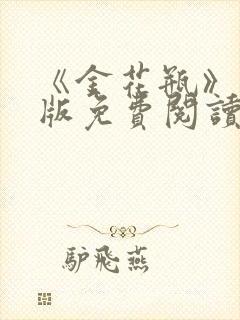 《金花瓶》
版免費閱讀
驴飛燕